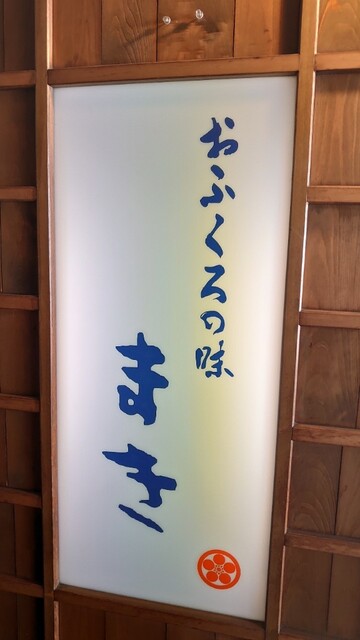 おふくろの味
まき